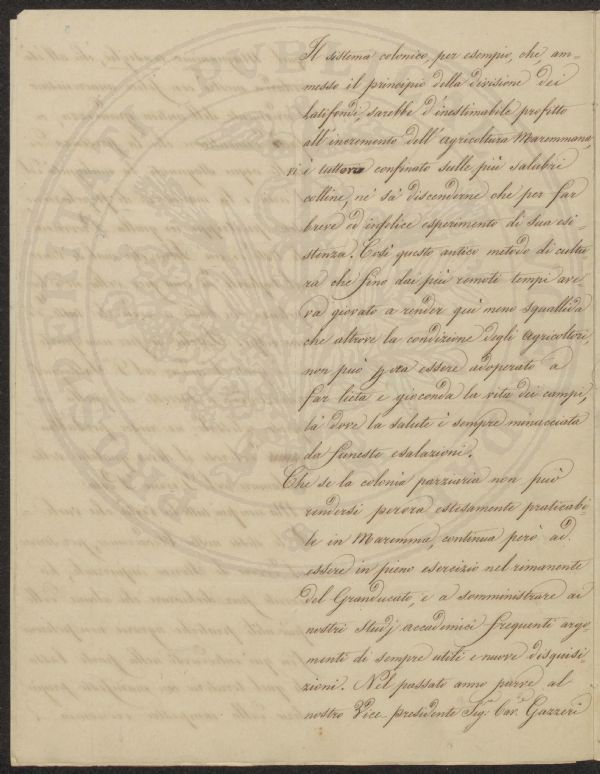 Il sistema colonico, per esempio, che, am-
messo il principio della divisione dei
Latifondi, sarebbe d'inestimabile profitto
all'incremento dell'agricoltura Maremmana,
vi è tuttora confinato sulle più salubri
colline, nè sà discenderne che per far
breve ed infelice esperimento di sua esi-
stenza. Così questo antico metodo di cultu
ra che fino dai più remoti tempi ave-
va giovato a render quì meno squallida
che altrove la condizione degli Agricoltori,
non può ora essere adoperato a
far lieta e gioconda la vita dei campi,
là dove la salute è sempre minacciata
da funeste esalazioni.
Che se la colonia parziaria non può
rendersi perora estesamente praticabi-
le in Maremma, continua però ad
essere in pieno esercizio nel rimanente
del Granducato, e a somministrare ai
nostri Studj accademici frequenti argo-
menti di sempre utili e nuove disquisi-
zioni. Nel passato anno parve al
nostro Vice-presidente Sig.r Cav. Gazzeri
PROSPERITATI PUBL